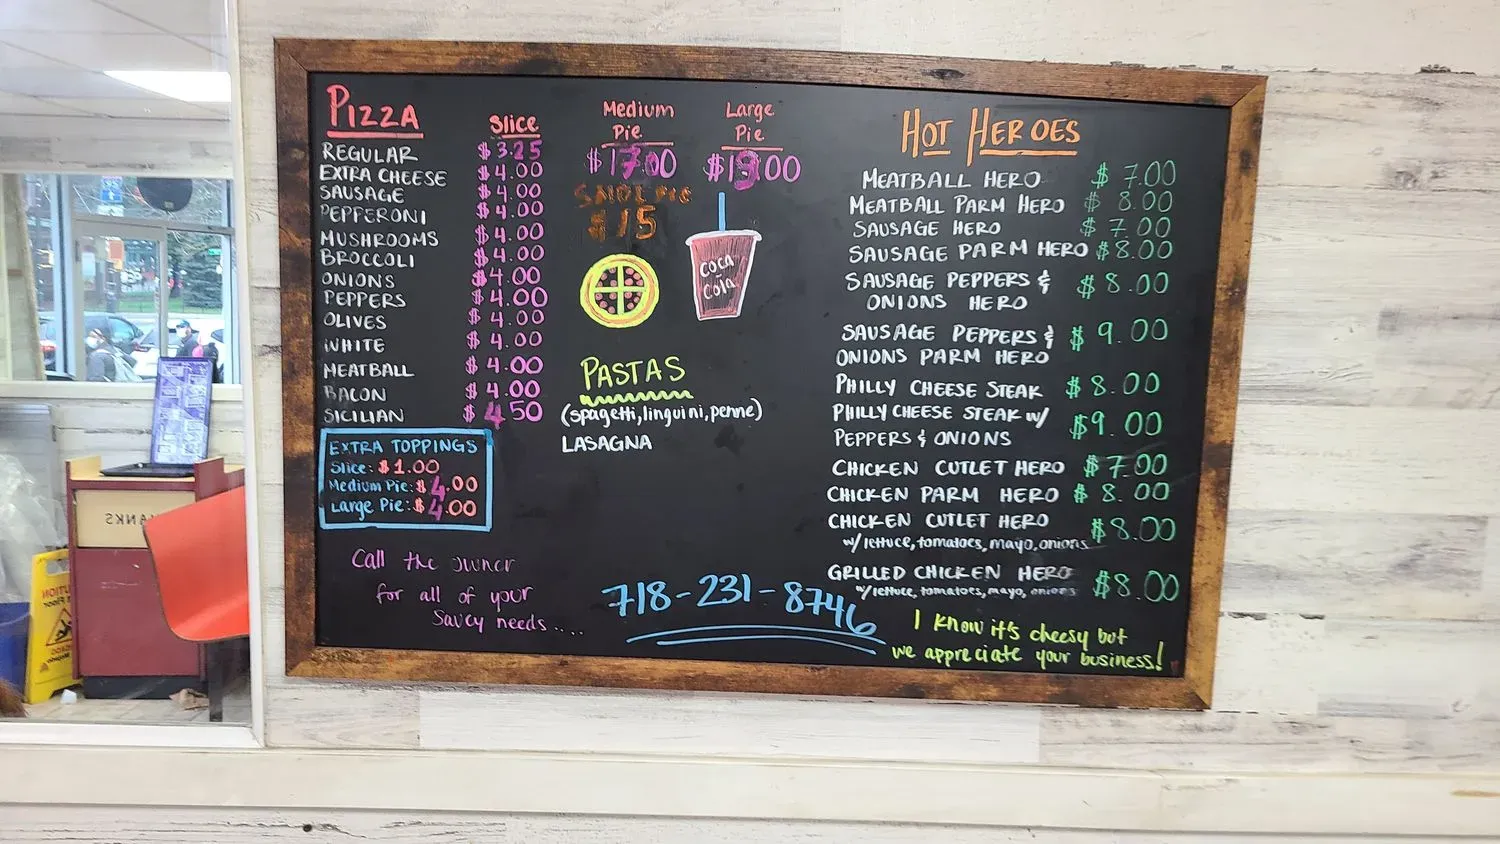 PIZZA
Slice
REGULAR $3.25
EXTRA CHEESE $4.00
SAUSAGE $4.00
PEPPERONI $4.00
MUSHROOMS $4.00
BROCCOLI $4.00
ONIONS $4.00
PEPPERS $4.00
OLIVES $4.00
WHITE $4.00
MEATBALL $4.00
BACON $4.00
SICILIAN $4.50
EXTRA TOPPINGS
Slice: $1.00
Medium Pie: $4.00
Large Pie: $4.00
Call the owner
for all of your
Saucy needs....
Medium
Pie
$17.00
Large
Pie
$19.00
SMALL PIE
$15
COCA
-
Cola
PASTAS
(spagetti, linguini, penne)
LASAGNA
718-231-8746
HOT HEROES
MEATBALL HERO $7.00
MEATBALL PARM HERO $8.00
SAUSAGE HERO $7.00
SAUSAGE PARM HERO $8.00
SAUSAGE PEPPERS & $8.00
ONIONS HERO
SAUSAGE PEPPERS & $9.00
ONIONS PARM HERO
PHILLY CHEESE STEAK $8.00
PHILLY CHEESE STEAK w/ $9.00
PEPPERS & ONIONS
CHICKEN CUTLET HERO $7.00
CHICKEN PARM HERO $8.00
CHICKEN CUTLET HERO $8.00
w/lettuce, tomatoes, mayo, onions
GRILLED CHICKEN HERO $8.00
w/lettuce, tomatoes, mayo, onions
I know it's cheesy but
we appreciate your business!